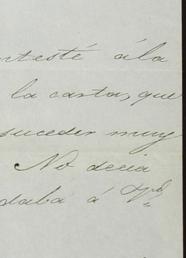 ntesté á la
la carta, que
suceder muy
No decia
daba á Vd.